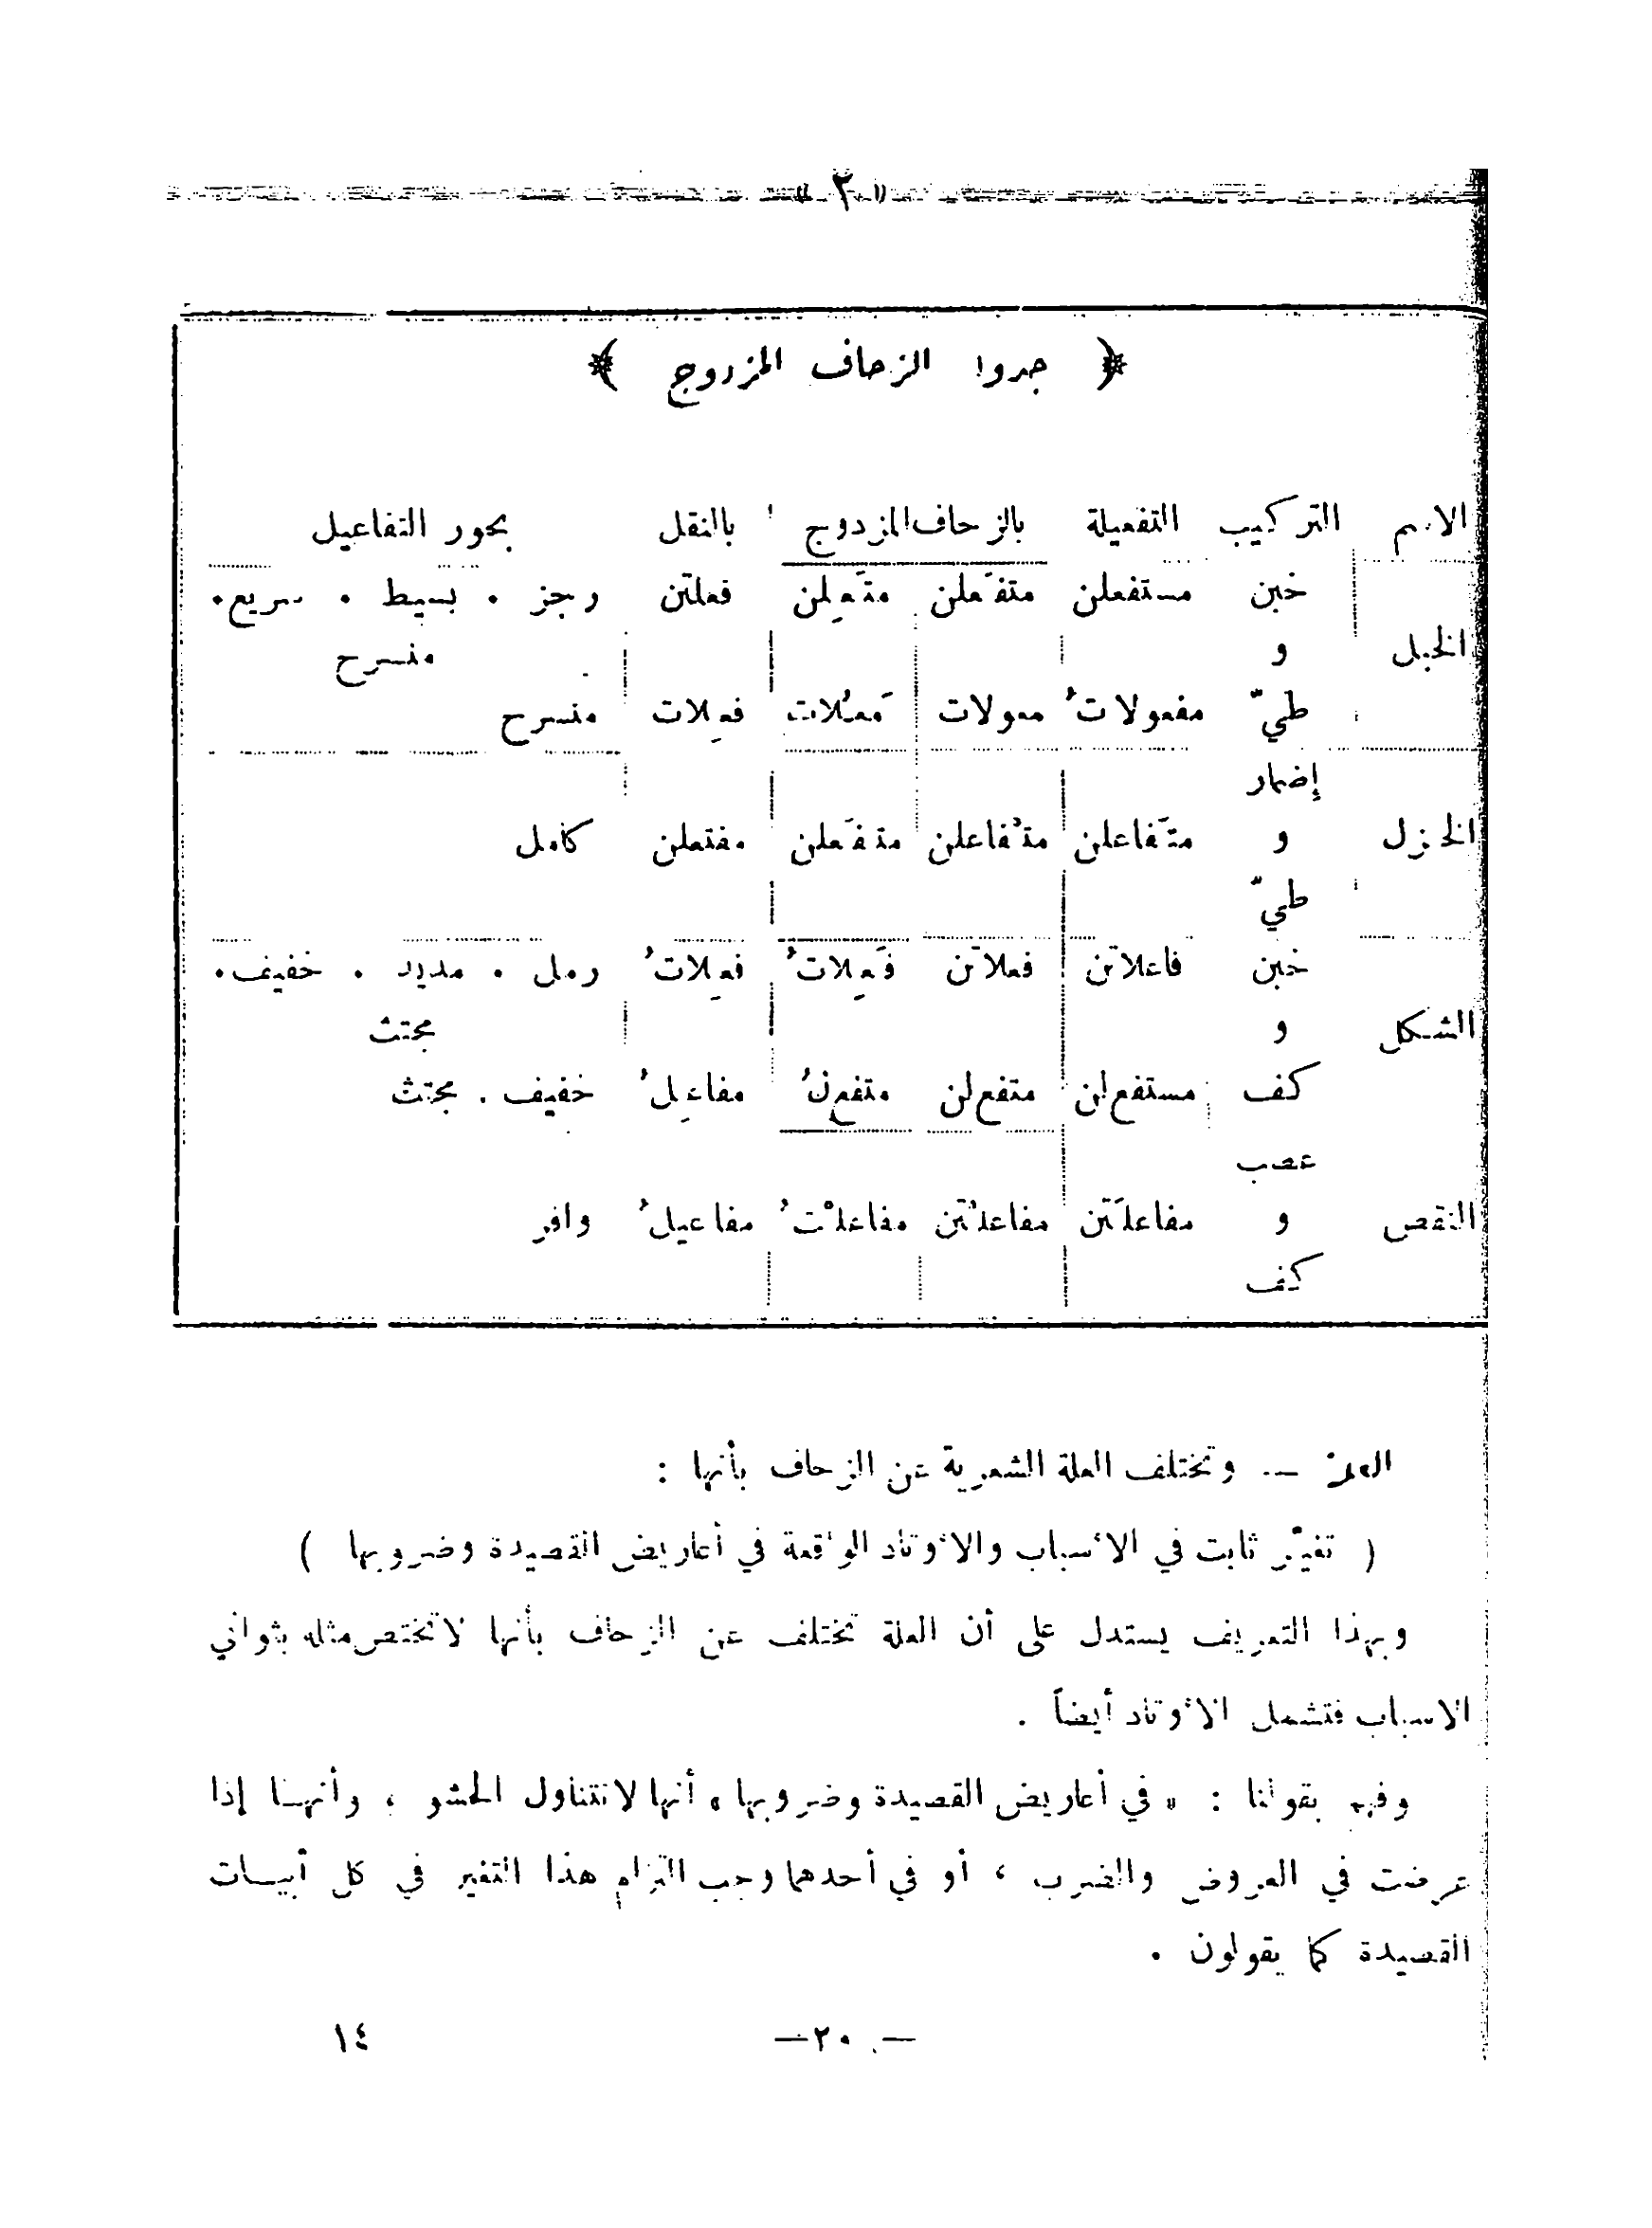 « ٣ »
﴿ جدول الزحاف المزدوج ﴾
الاسم التركيب التفعيلة بالزحاف المزدوج بالنقل بحور التفاعيل
خبن مستفعلن متفعلن متعلن فعلتن رجز . بسيط . سريع .
الخبل و منسرح
طيّ مفعولاتُ معولات مَعُلات فعِلات منسرح
إضمار
الخزل و متَفاعلن متْفاعلن متفَعلن مفتعلن كامل
طيّ
خبن فاعلاتن فعلاتن فَعِلاتُ فعِلاتُ رمل . مديد . خفيف .
الشكل و مجتث
كف مستفع لن متفع لن متفع لُ مفاعِلُ خفيف . مجتث
عصب
النقص و مفاعلَتن مفاعلْتن مفاعلْتُ مفاعيلُ وافر
كف
العلة — وتختلف العلة الشعرية عن الزحاف بأنها :
( تغيّر ثابت في الأسباب والأوتاد الواقعة في أعاريض القصيدة وضروبها )
وبهذا التعريف يستدل على أن العلة تختلف عن الزحاف بأنها لا تختص مثله بثواني
الاسباب فتشمل الأوتاد أيضاً .
وفهم بقولنا : « في أعاريض القصيدة وضروبها » أنها لا تتناول الحشو ، وأنها إذا
عرضت في العروض والضرب ، أو في أحدهما وجب التزام هذا التغير في كل أبيات
القصيدة كما يقولون .
— ٢٠ — ١٤